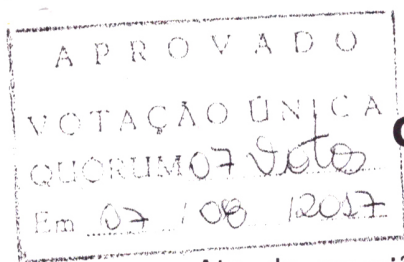 APROVADO
VOTAÇÃO ÚNICA
QUORUM 07 Votos
Em 07 / 08 / 2017